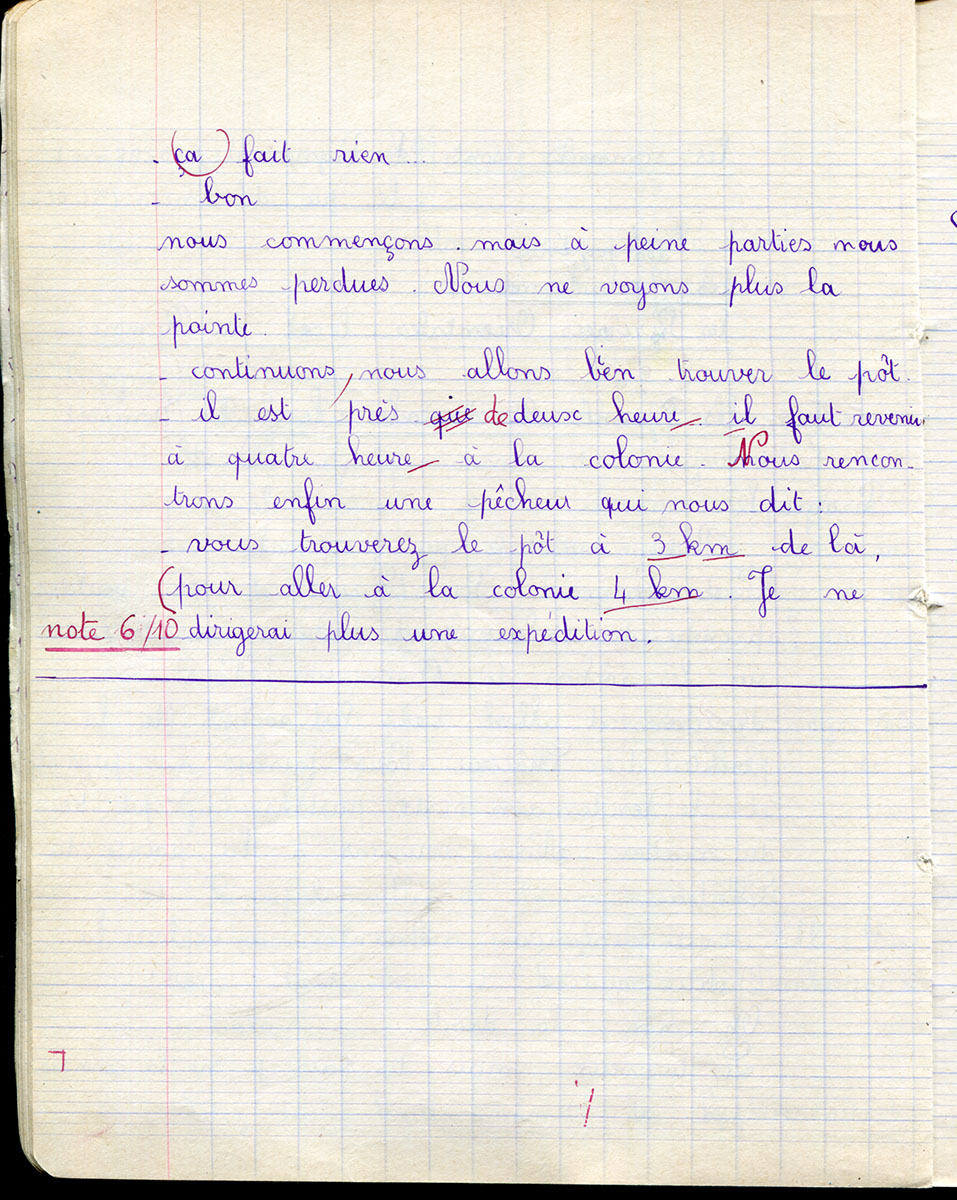 - ça fait rien...
- bon
nous commençons. mais à peine parties nous
sommes perdues. Nous ne voyons plus la
pointe.
- continuons, nous allons bien trouver le pôt.
- il est près que de deux heure. il faut revenir
à quatre heure à la colonie. Nous rencon-
trons enfin une pêcheur qui nous dit :
- vous trouverez le pôt à 3 km de là,
(pour aller à la colonie 4 km. Je ne
note 6/10 dirigerai plus une expédition.